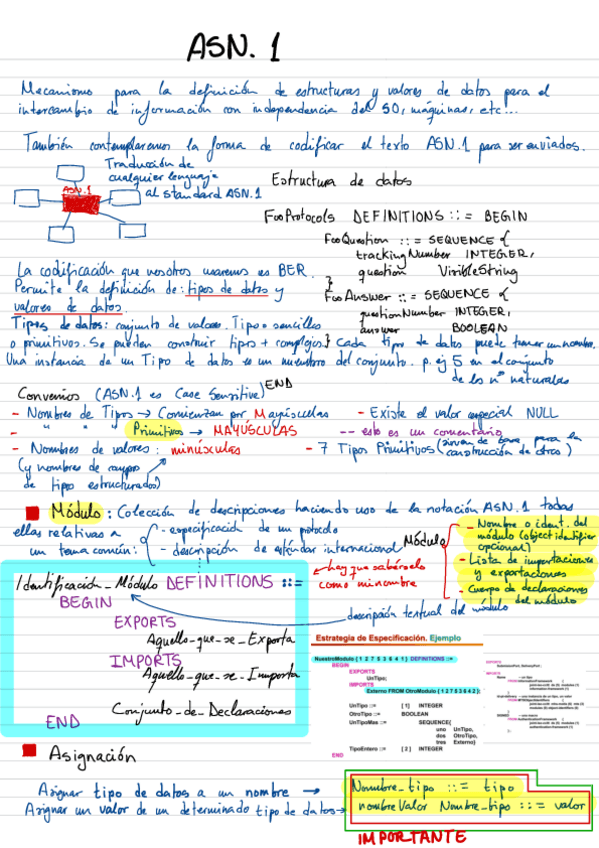 ASN. 1
Mecanismo para la definición de estructuras y valores de datos para el
intercambio de información con independencia del SO, máquinas, etc...
También contemplaremos la forma de codificar el texto ASN.1 para ser enviados.
Traducción de
cualquier lenguaje
al standard ASN.1
ASN.1
Estructura de datos
FooProtocols DEFINITIONS ::= BEGIN
FooQuestion ::= SEQUENCE {
trackingNumber INTEGER,
question VisibleString
}
FooAnswer ::= SEQUENCE {
questionNumber INTEGER,
answer BOOLEAN
}
END
La codificación que nosotros usaremos es BER.
Permite la definición de: tipos de datos y
valores de datos.
Tipos de datos: conjunto de valores. Tipos sencillos
o primitivos. Se pueden construir tipos + complejos. Cada tipo de datos puede tener un nombre.
Una instancia de un Tipo de datos es un miembro del conjunto. p.ej 5 en el conjunto
de los nº naturales
Convenios (ASN.1 es Case Sensitive)
- Nombres de Tipos → Comienzan por Mayúsculas
- " " " Primitivos → MAYÚSCULAS
- Nombres de valores: minúsculas
(y nombres de campos
de tipos estructurados)
- Existe el valor especial NULL
-- esto es un comentario
- 7 Tipos Primitivos (sirven de base para la
construcción de otros)
Módulo: Colección de descripciones haciendo uso de la notación ASN.1 todas
ellas relativas a
un tema común:
- especificación de un protocolo
- descripción de estándar internacional
Módulo
- Nombre o ident. del
módulo (object identifier
opcional)
- Lista de importaciones
y exportaciones
- Cuerpo de declaraciones
del módulo
hay que sabérselo
como mi nombre
descripción textual del módulo
Identificación_Módulo DEFINITIONS ::=
BEGIN
EXPORTS
Aquello-que-se-Exporta
IMPORTS
Aquello-que-se-Importa
Conjunto_de_Declaraciones
END
Estrategia de Especificación. Ejemplo
NuestroModulo { 1 2 7 5 3 6 4 1 } DEFINITIONS ::=
BEGIN
EXPORTS
UnTipo;
IMPORTS
Externo FROM OtroModulo { 1 2 7 5 3 6 4 2 };
UnTipo ::= [ 1 ] INTEGER
OtroTipo ::= BOOLEAN
UnTipoMas ::= SEQUENCE{
uno UnTipo,
dos OtroTipo,
tres Externo}
TipoEntero ::= [ 2 ] INTEGER
END
Asignación
Asignar tipo de datos a un nombre →
Asignar un valor de un determinado tipo de datos →
Nombre_tipo ::= tipo
nombreValor Nombre_tipo ::= valor
IMPORTANTE